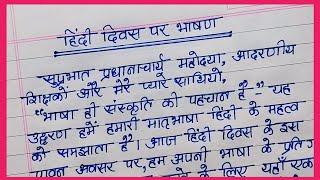 हिंदी दिवस पर भाषण
सुप्रभात प्रधानाचार्य महोदया, आदरणीय
शिक्षकों और मेरे प्यारे साथियो,
"भाषा ही संस्कृति की पहचान है-" यह
उद्धरण हमें हमारी मातृभाषा हिंदी के महत्व
को समझाता है। आज हिंदी दिवस के इस
पावन अवसर पर, हम अपनी भाषा के प्रति
के लिए यहाँ एक